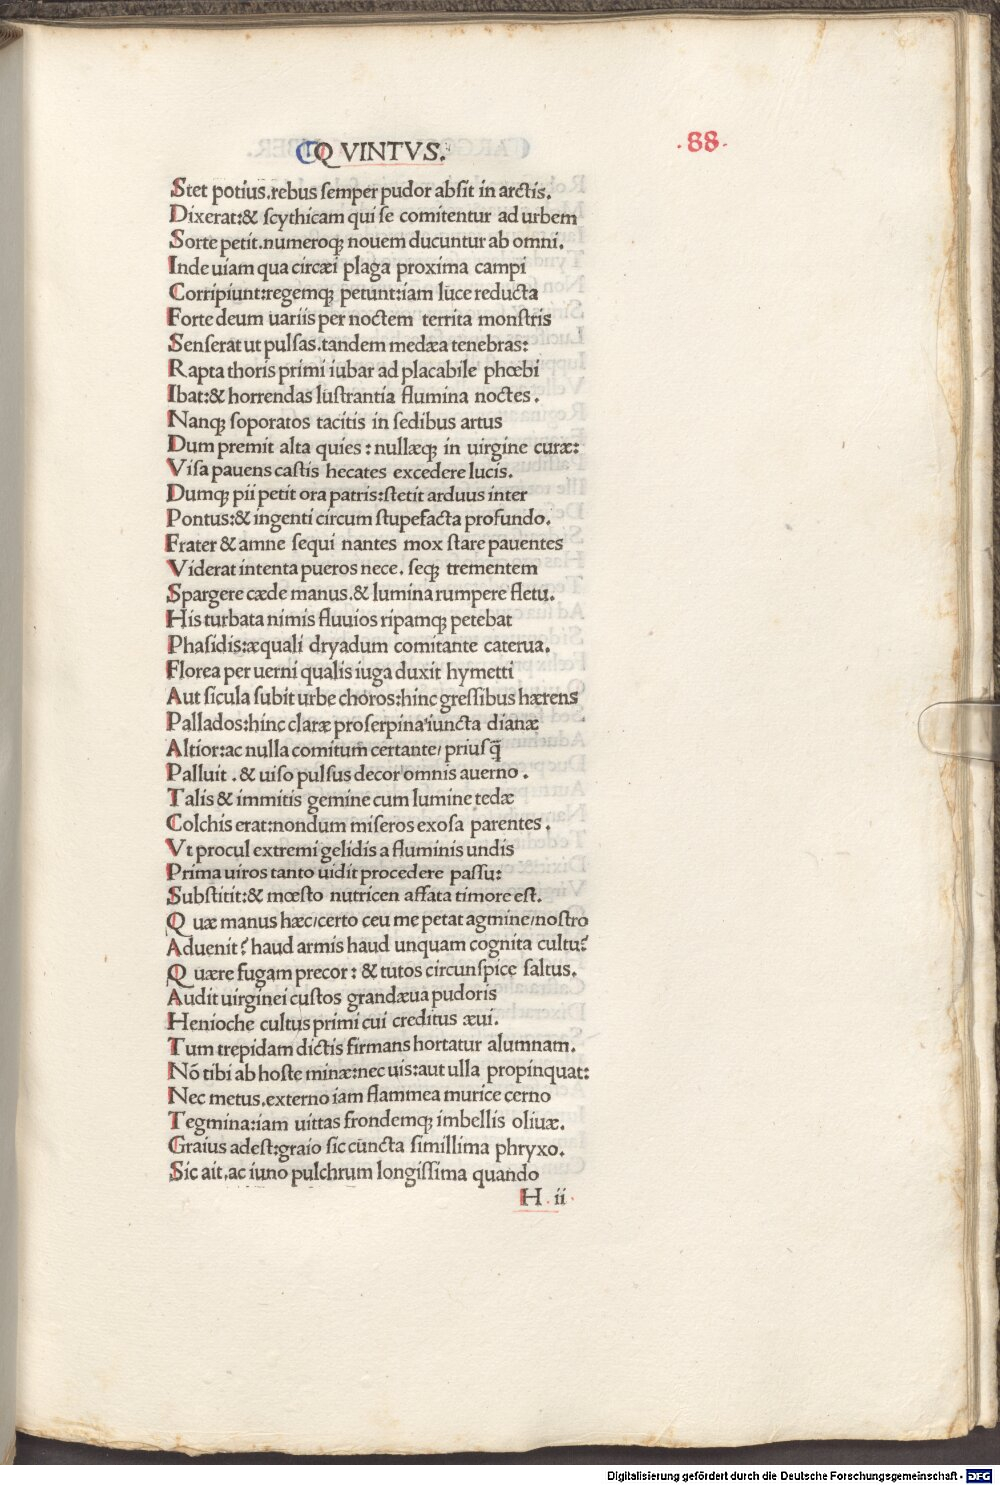 QVINTVS.
.88.
Stet potius.rebus semper pudor absit in arctis.
Dixerat:& scythicam qui se comitentur ad urbem
Sorte petit.numeroqꝫ nouem ducuntur ab omni.
Inde uiam qua circæi plaga proxima campi
Corripiunt:regemqꝫ petunt:iam luce reducta
Forte deum uariis per noctem territa monstris
Senserat ut pulsas.tandem medæa tenebras:
Rapta thoris primi iubar ad placabile phœbi
Ibat:& horrendas lustrantia flumina noctes.
Nanqꝫ soporatos tacitis in sedibus artus
Dum premit alta quies: nullæqꝫ in uirgine curæ:
Visa pauens castis hecates excedere lucis.
Dumqꝫ pii petit ora patris:stetit arduus inter
Pontus:& ingenti circum stupefacta profundo.
Frater & amne sequi nantes mox stare pauentes
Viderat intenta pueros nece. seqꝫ trementem
Spargere cæde manus.& lumina rumpere fletu.
His turbata nimis fluuios ripamqꝫ petebat
Phasidis:æquali dryadum comitante caterua.
Florea per uerni qualis iuga duxit hymetti
Aut sicula subit urbe choros:hinc gressibus hærens
Pallados:hinc claræ proserpina iuncta dianæ
Altior:ac nulla comitum certante/priusq̃
Palluit.& uiso pulsus decor omnis auerno.
Talis & immitis gemine cum lumine tedæ
Colchis erat:nondum miseros exosa parentes.
Vt procul extremi gelidis a fluminis undis
Prima uiros tanto uidit procedere passu:
Substitit:& mœsto nutricen affata timore est.
Quæ manus hæc/certo ceu me petat agmine/nostro
Aduenit? haud armis haud unquam cognita cultu?
Quære fugam precor: & tutos circunspice saltus.
Audit uirginei custos grandæua pudoris
Henioche cultus primi cui creditus æui.
Tum trepidam dictis firmans hortatur alumnam.
Nō tibi ab hoste minæ:nec uis:aut ulla propinquat:
Nec metus.externo iam flammea murice cerno
Tegmina:iam uittas frondemqꝫ imbellis oliuæ.
Graius adest:graio sic cuncta simillima phryxo.
Sic ait.ac iuno pulchrum longissima quando
H.ii.
Digitalisierung gefördert durch die Deutsche Forschungsgemeinschaft - DFG